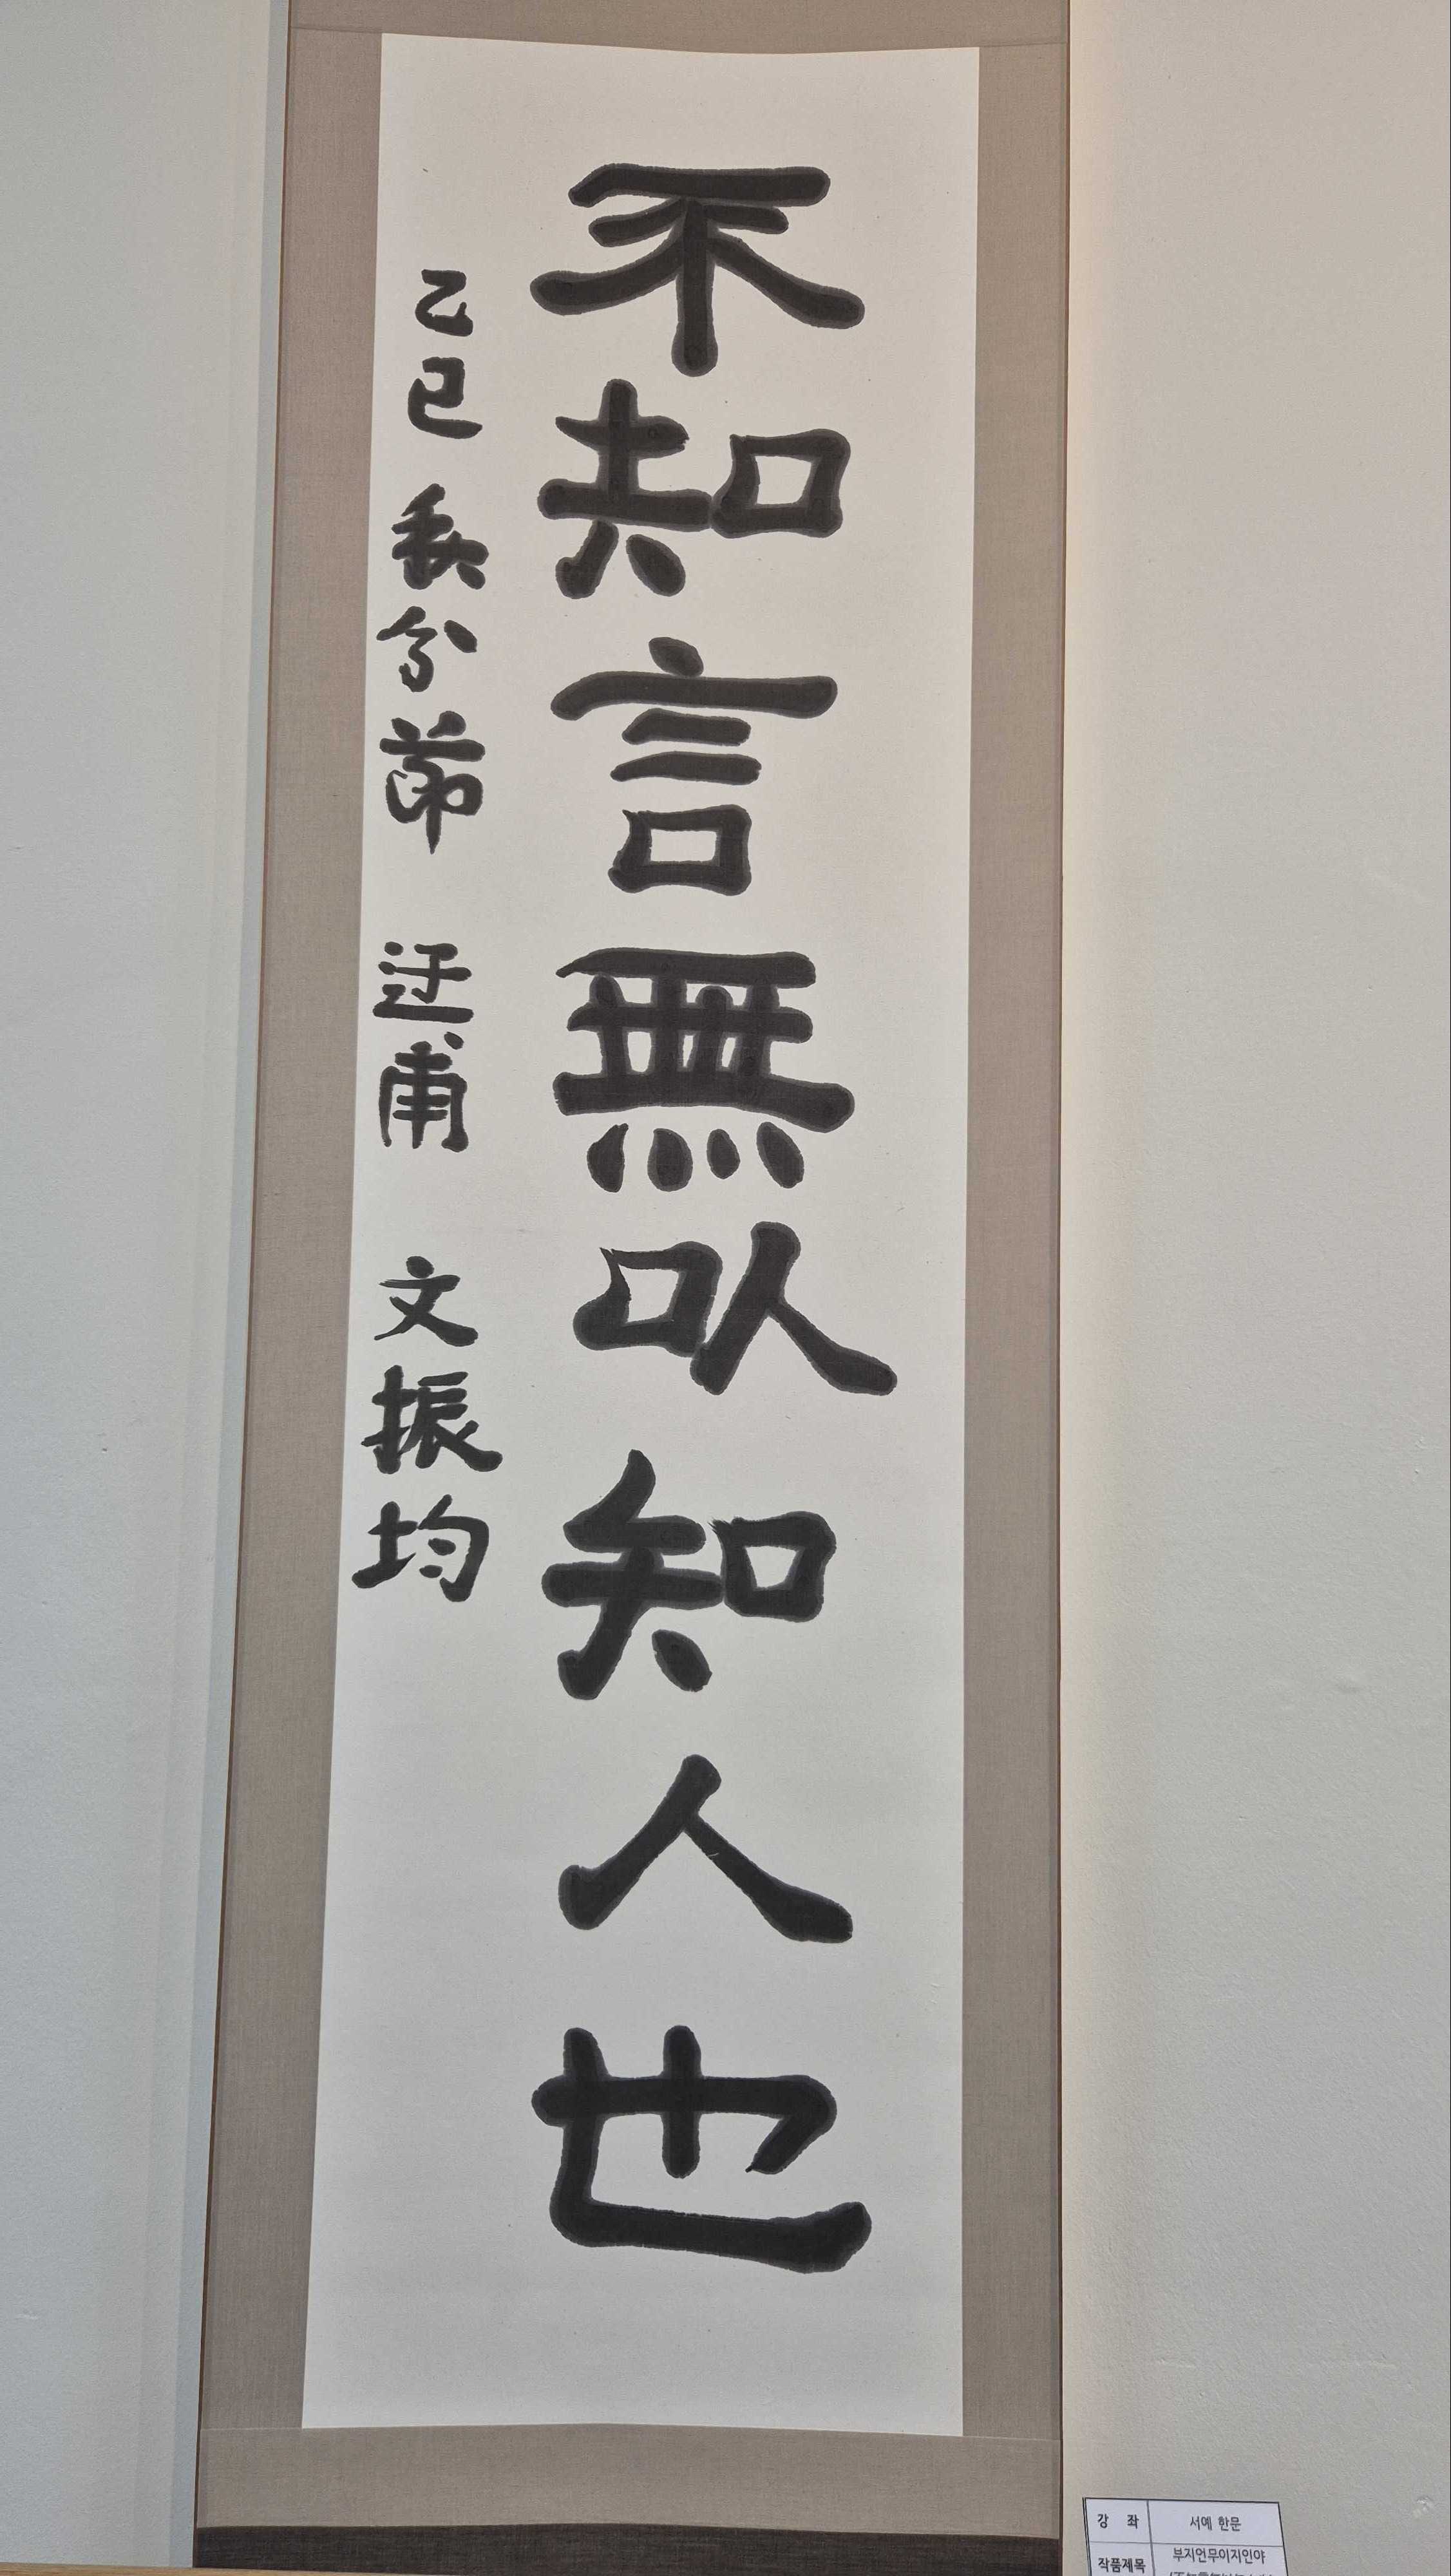 不知言無以知人也
乙巳 秋分節 迂甫 文振均
강 좌 서예 한문
작품제목 부지언무이지인야